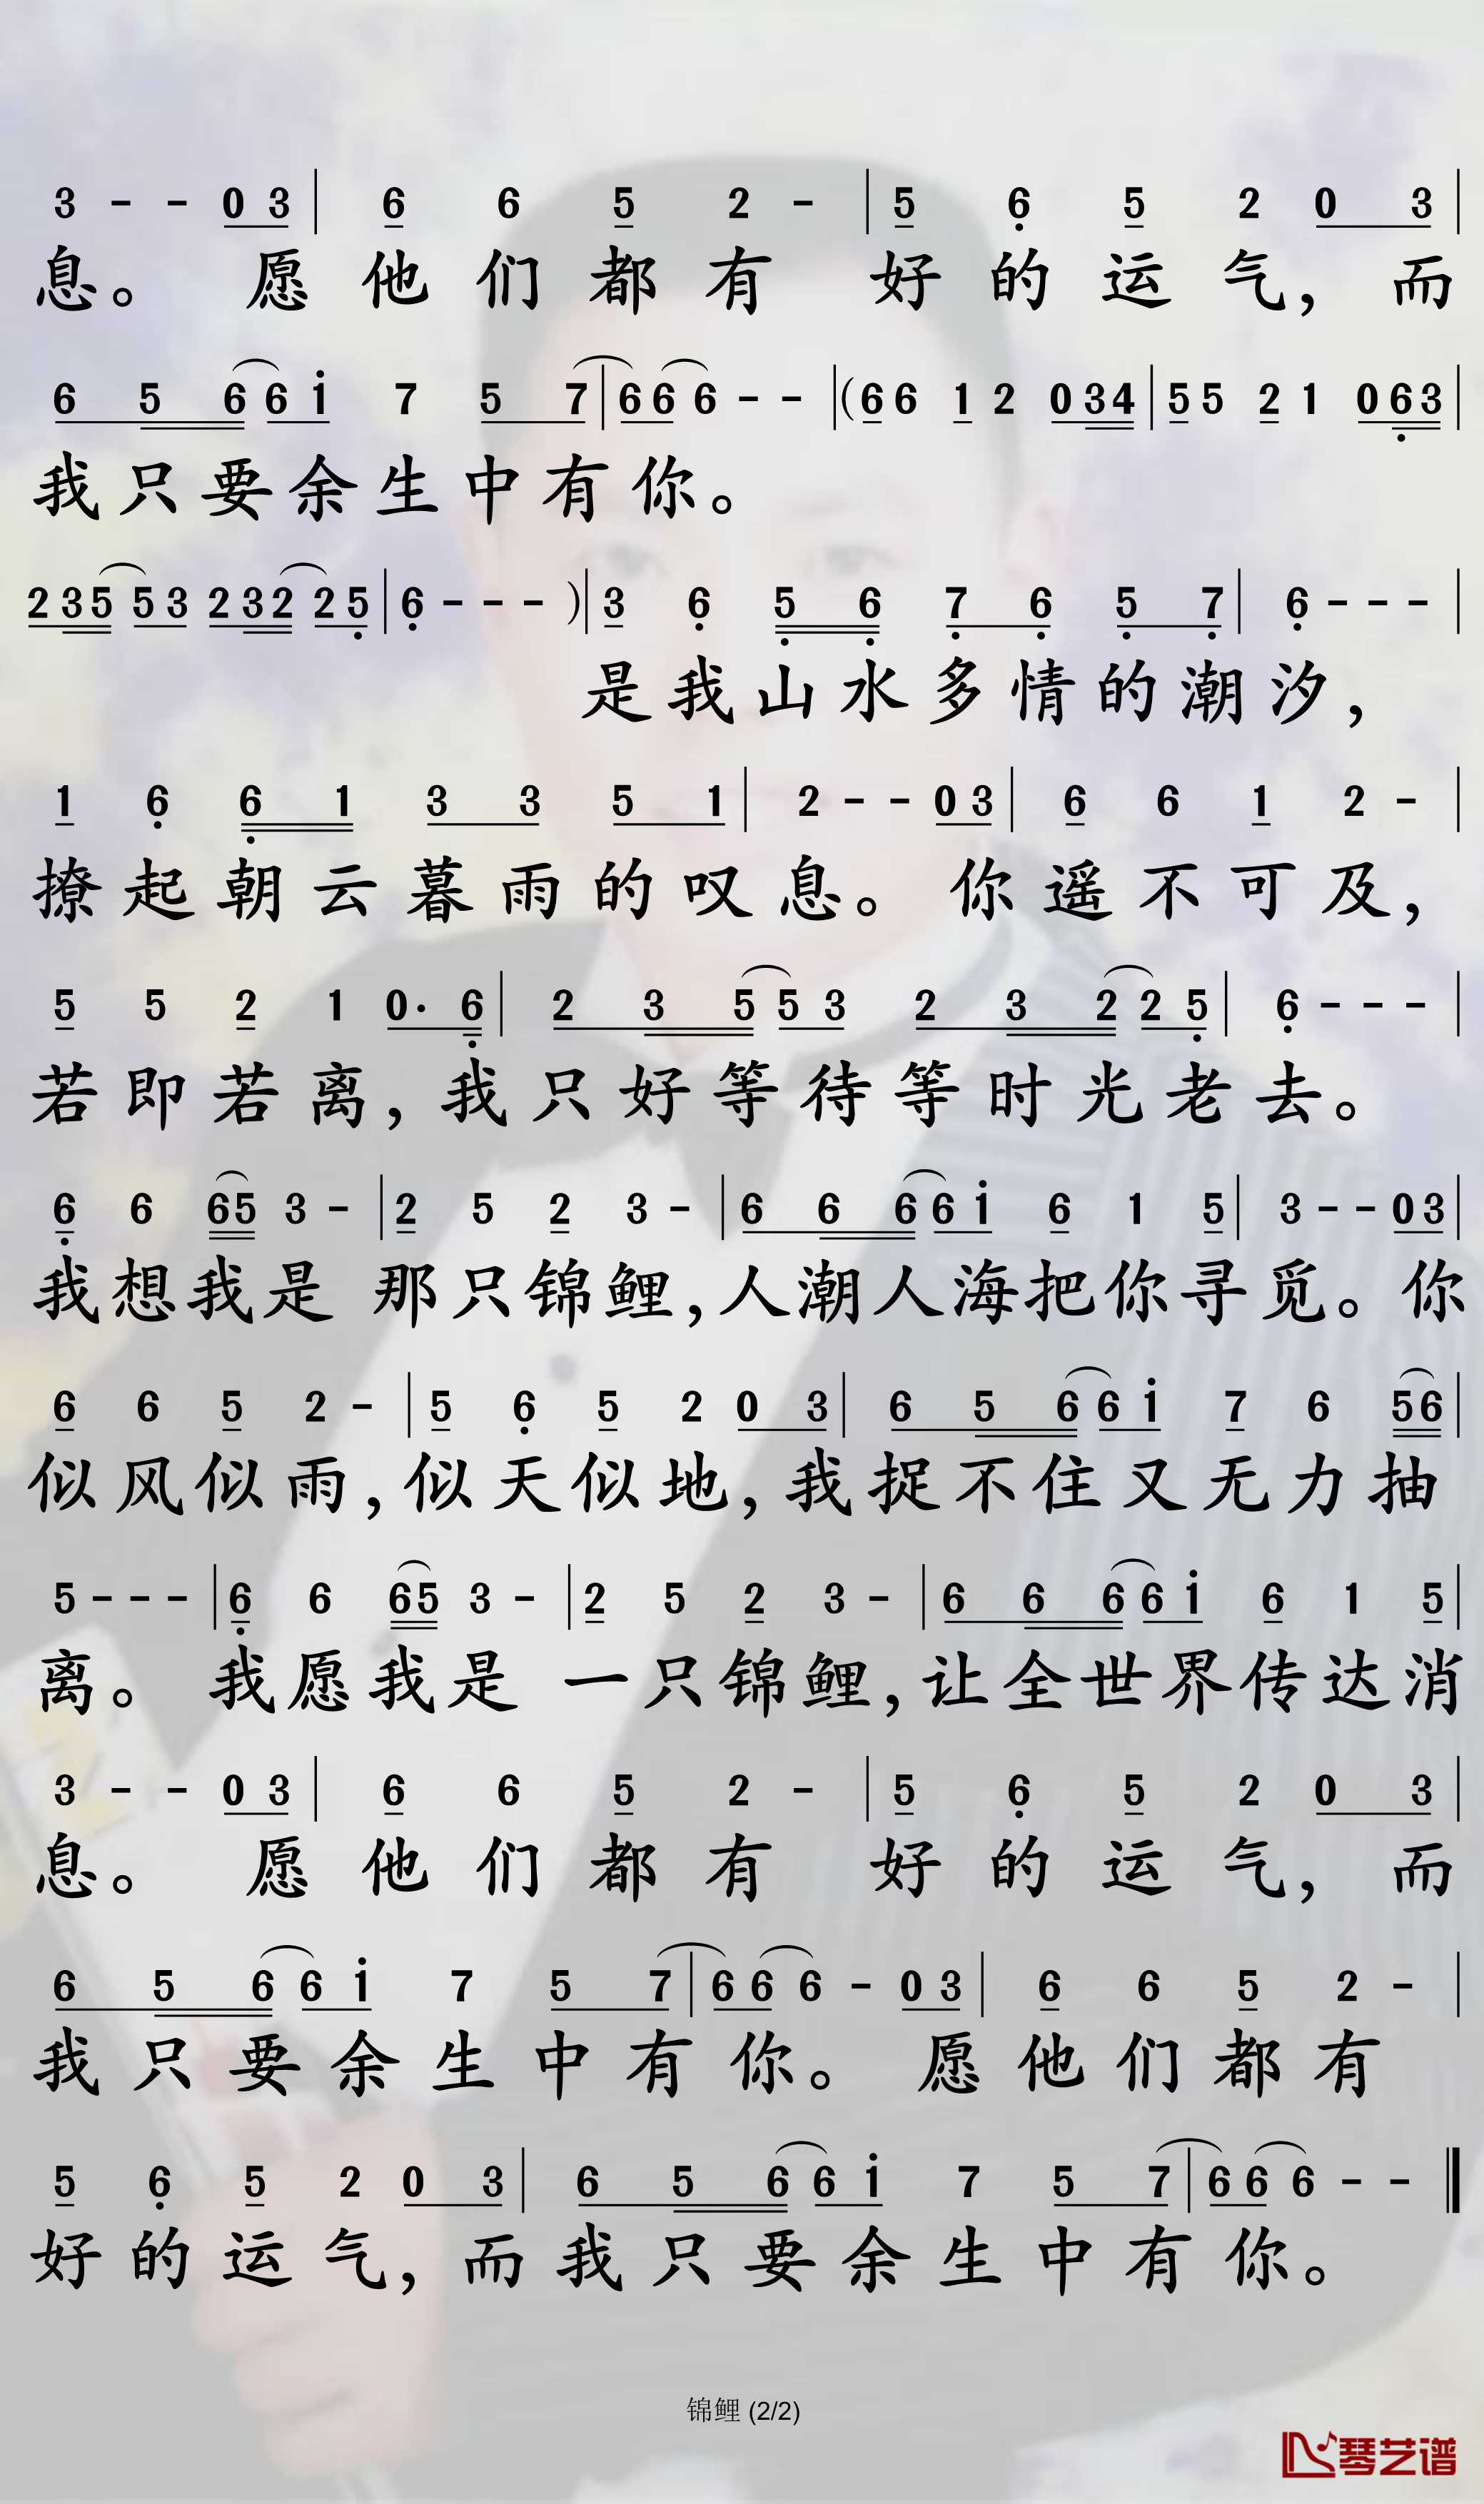 3 - - 0 3 | 6 6 5 2 - | 5 6 5 2 0 3 |
息。 愿 他 们 都 有 好 的 运 气, 而
6 5 6 6 i 7 5 7 | 6 6 6 - - | ( 6 6 1 2 0 3 4 | 5 5 2 1 0 6 3 |
我 只 要 余 生 中 有 你。
2 3 5 5 3 2 3 2 2 5 | 6 - - - ) | 3 6 5 6 7 6 5 7 | 6 - - - |
是 我 山 水 多 情 的 潮 汐,
1 6 6 1 3 3 5 1 | 2 - - 0 3 | 6 6 1 2 - |
撩 起 朝 云 暮 雨 的 叹 息。 你 遥 不 可 及,
5 5 2 1 0· 6 | 2 3 5 5 3 2 3 2 2 5 | 6 - - - |
若 即 若 离, 我 只 好 等 待 等 时 光 老 去。
6 6 6 5 3 - | 2 5 2 3 - | 6 6 6 6 i 6 1 5 | 3 - - 0 3 |
我 想 我 是 那 只 锦 鲤, 人 潮 人 海 把 你 寻 觅。 你
6 6 5 2 - | 5 6 5 2 0 3 | 6 5 6 6 i 7 6 5 6 |
似 风 似 雨, 似 天 似 地, 我 捉 不 住 又 无 力 抽
5 - - - | 6 6 6 5 3 - | 2 5 2 3 - | 6 6 6 6 i 6 1 5 |
离。 我 愿 我 是 一 只 锦 鲤, 让 全 世 界 传 达 消
3 - - 0 3 | 6 6 5 2 - | 5 6 5 2 0 3 |
息。 愿 他 们 都 有 好 的 运 气, 而
6 5 6 6 i 7 5 7 | 6 6 6 - 0 3 | 6 6 5 2 - |
我 只 要 余 生 中 有 你。 愿 他 们 都 有
5 6 5 2 0 3 | 6 5 6 6 i 7 5 7 | 6 6 6 - - ‖
好 的 运 气, 而 我 只 要 余 生 中 有 你。
锦鲤 (2/2)
琴艺谱